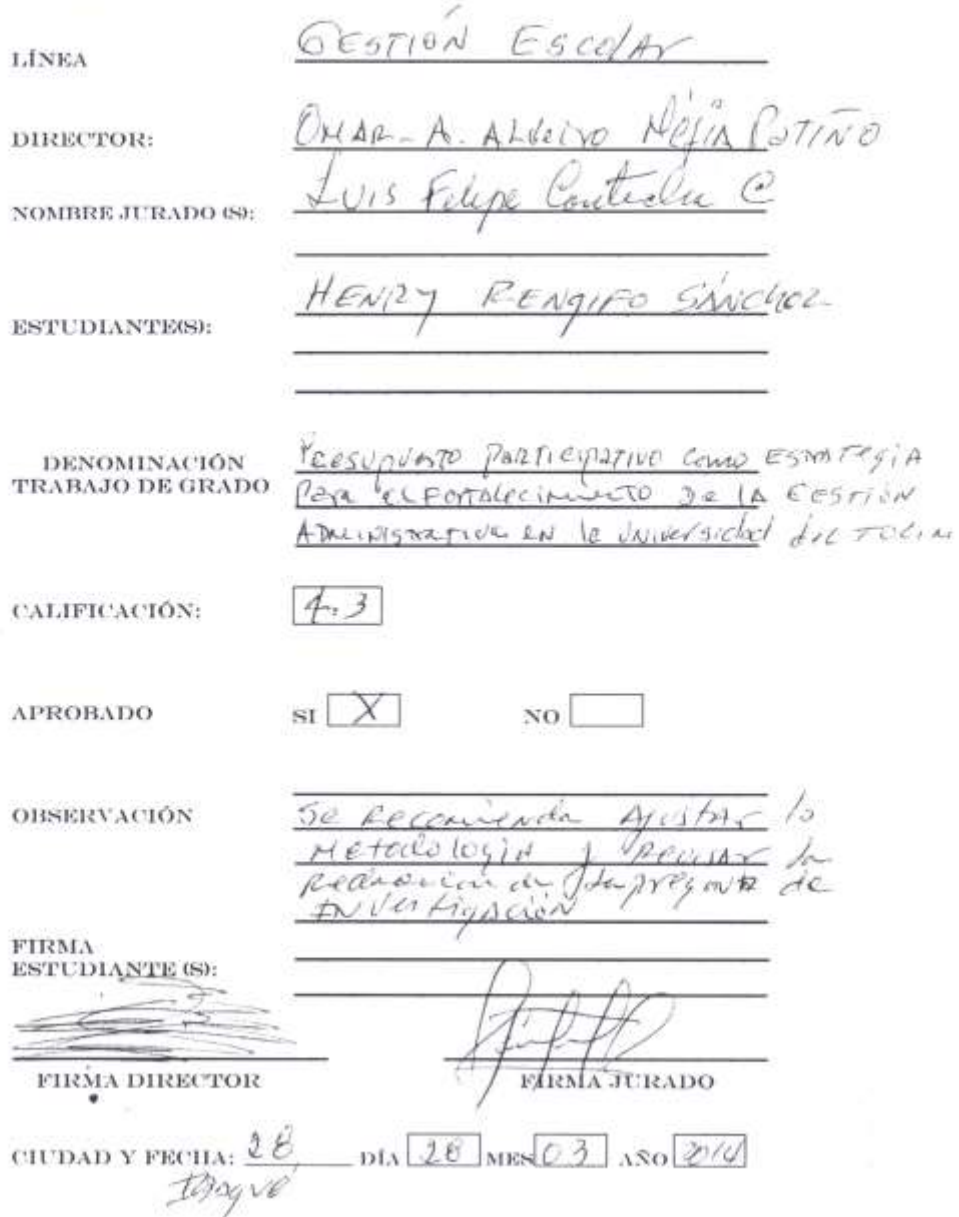 LÍNEA GESTIÓN EscolAr
DIRECTOR: OMAR-A. ALbeiro MejíA PATIÑO
NOMBRE JURADO (S): Luis Felipe C
ESTUDIANTE(S): HENRY RENgIFO SÁNChez
DENOMINACIÓN
TRABAJO DE GRADO
Presupuesto Participativo como ESTRATEgiA
Para el Fortalecimiento De lA GESTIÓN
ADMINISTRATIVA EN la Universidad del TOLIMA
CALIFICACIÓN: 4.3
APROBADO SI X NO
OBSERVACIÓN Se Recomienda Ajustar la
Metodología y Revisar la
Redacción de la pregunta de
INVestigACIÓN
FIRMA
ESTUDIANTE (S):
FIRMA DIRECTOR FIRMA JURADO
CIUDAD Y FECHA: 28 DÍA 28 MES 03 AÑO 2014
Ibagué